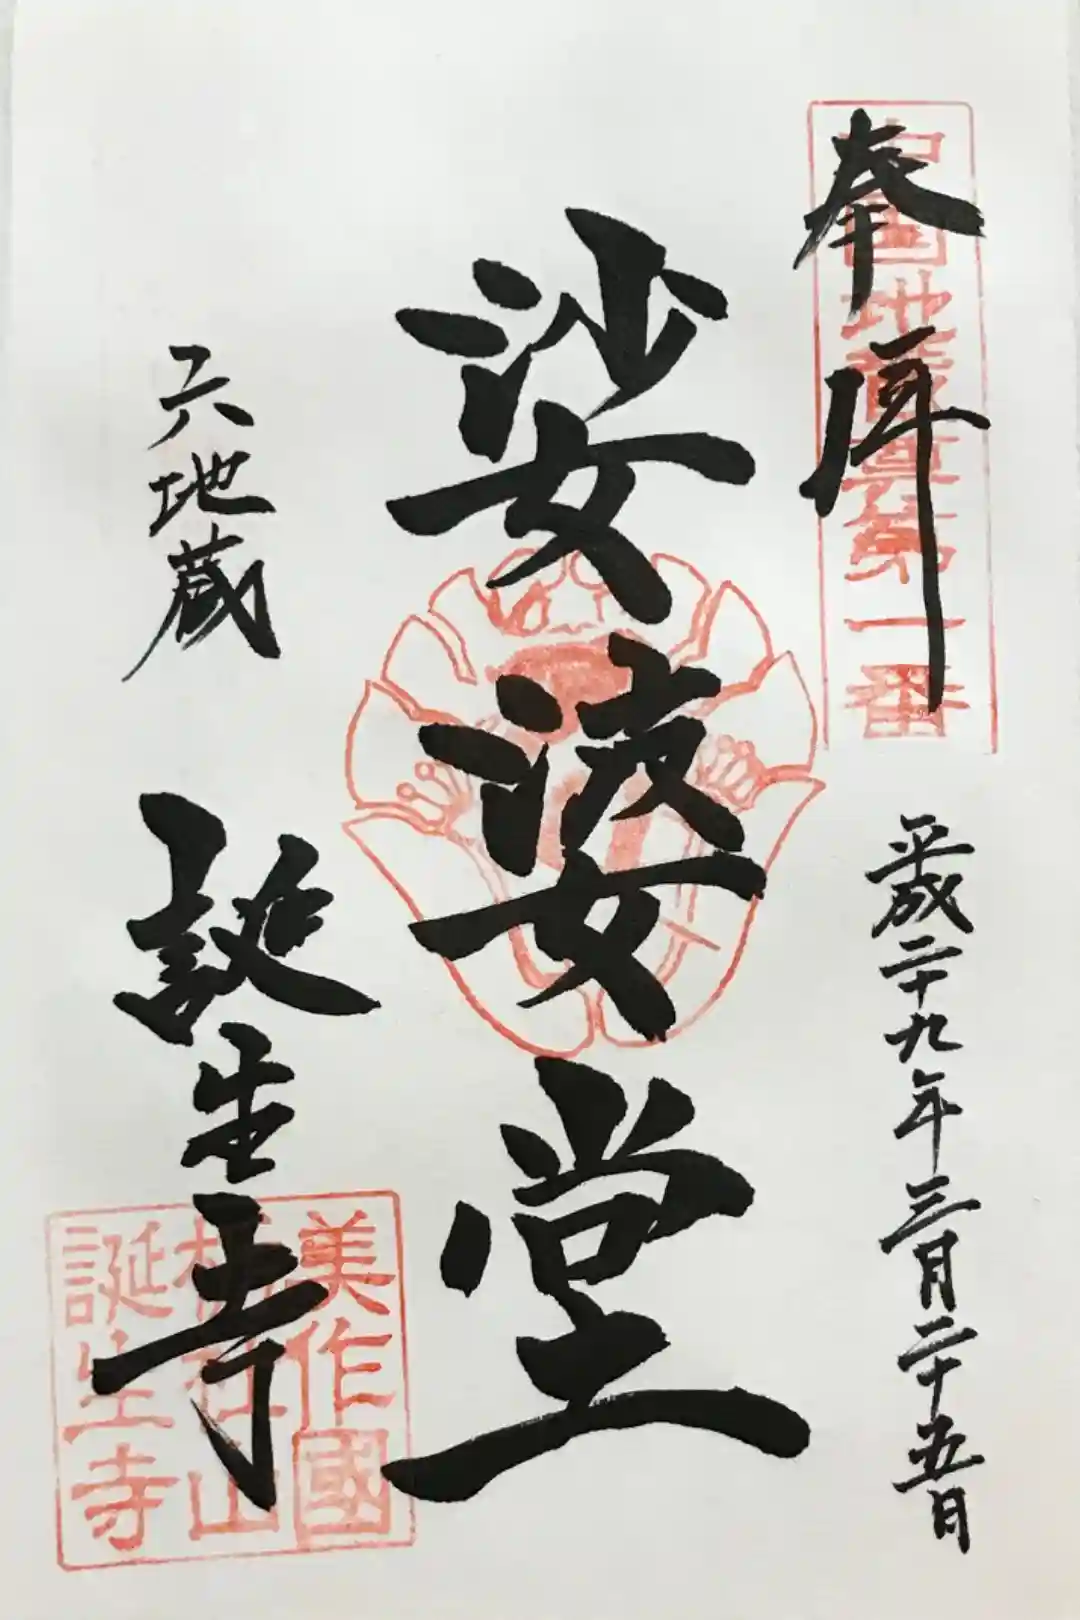 奉拝
中国地蔵尊第一番
平成二十九年三月二十五日
娑婆堂
六地蔵
誕生寺
美作國
栃社山
誕生寺